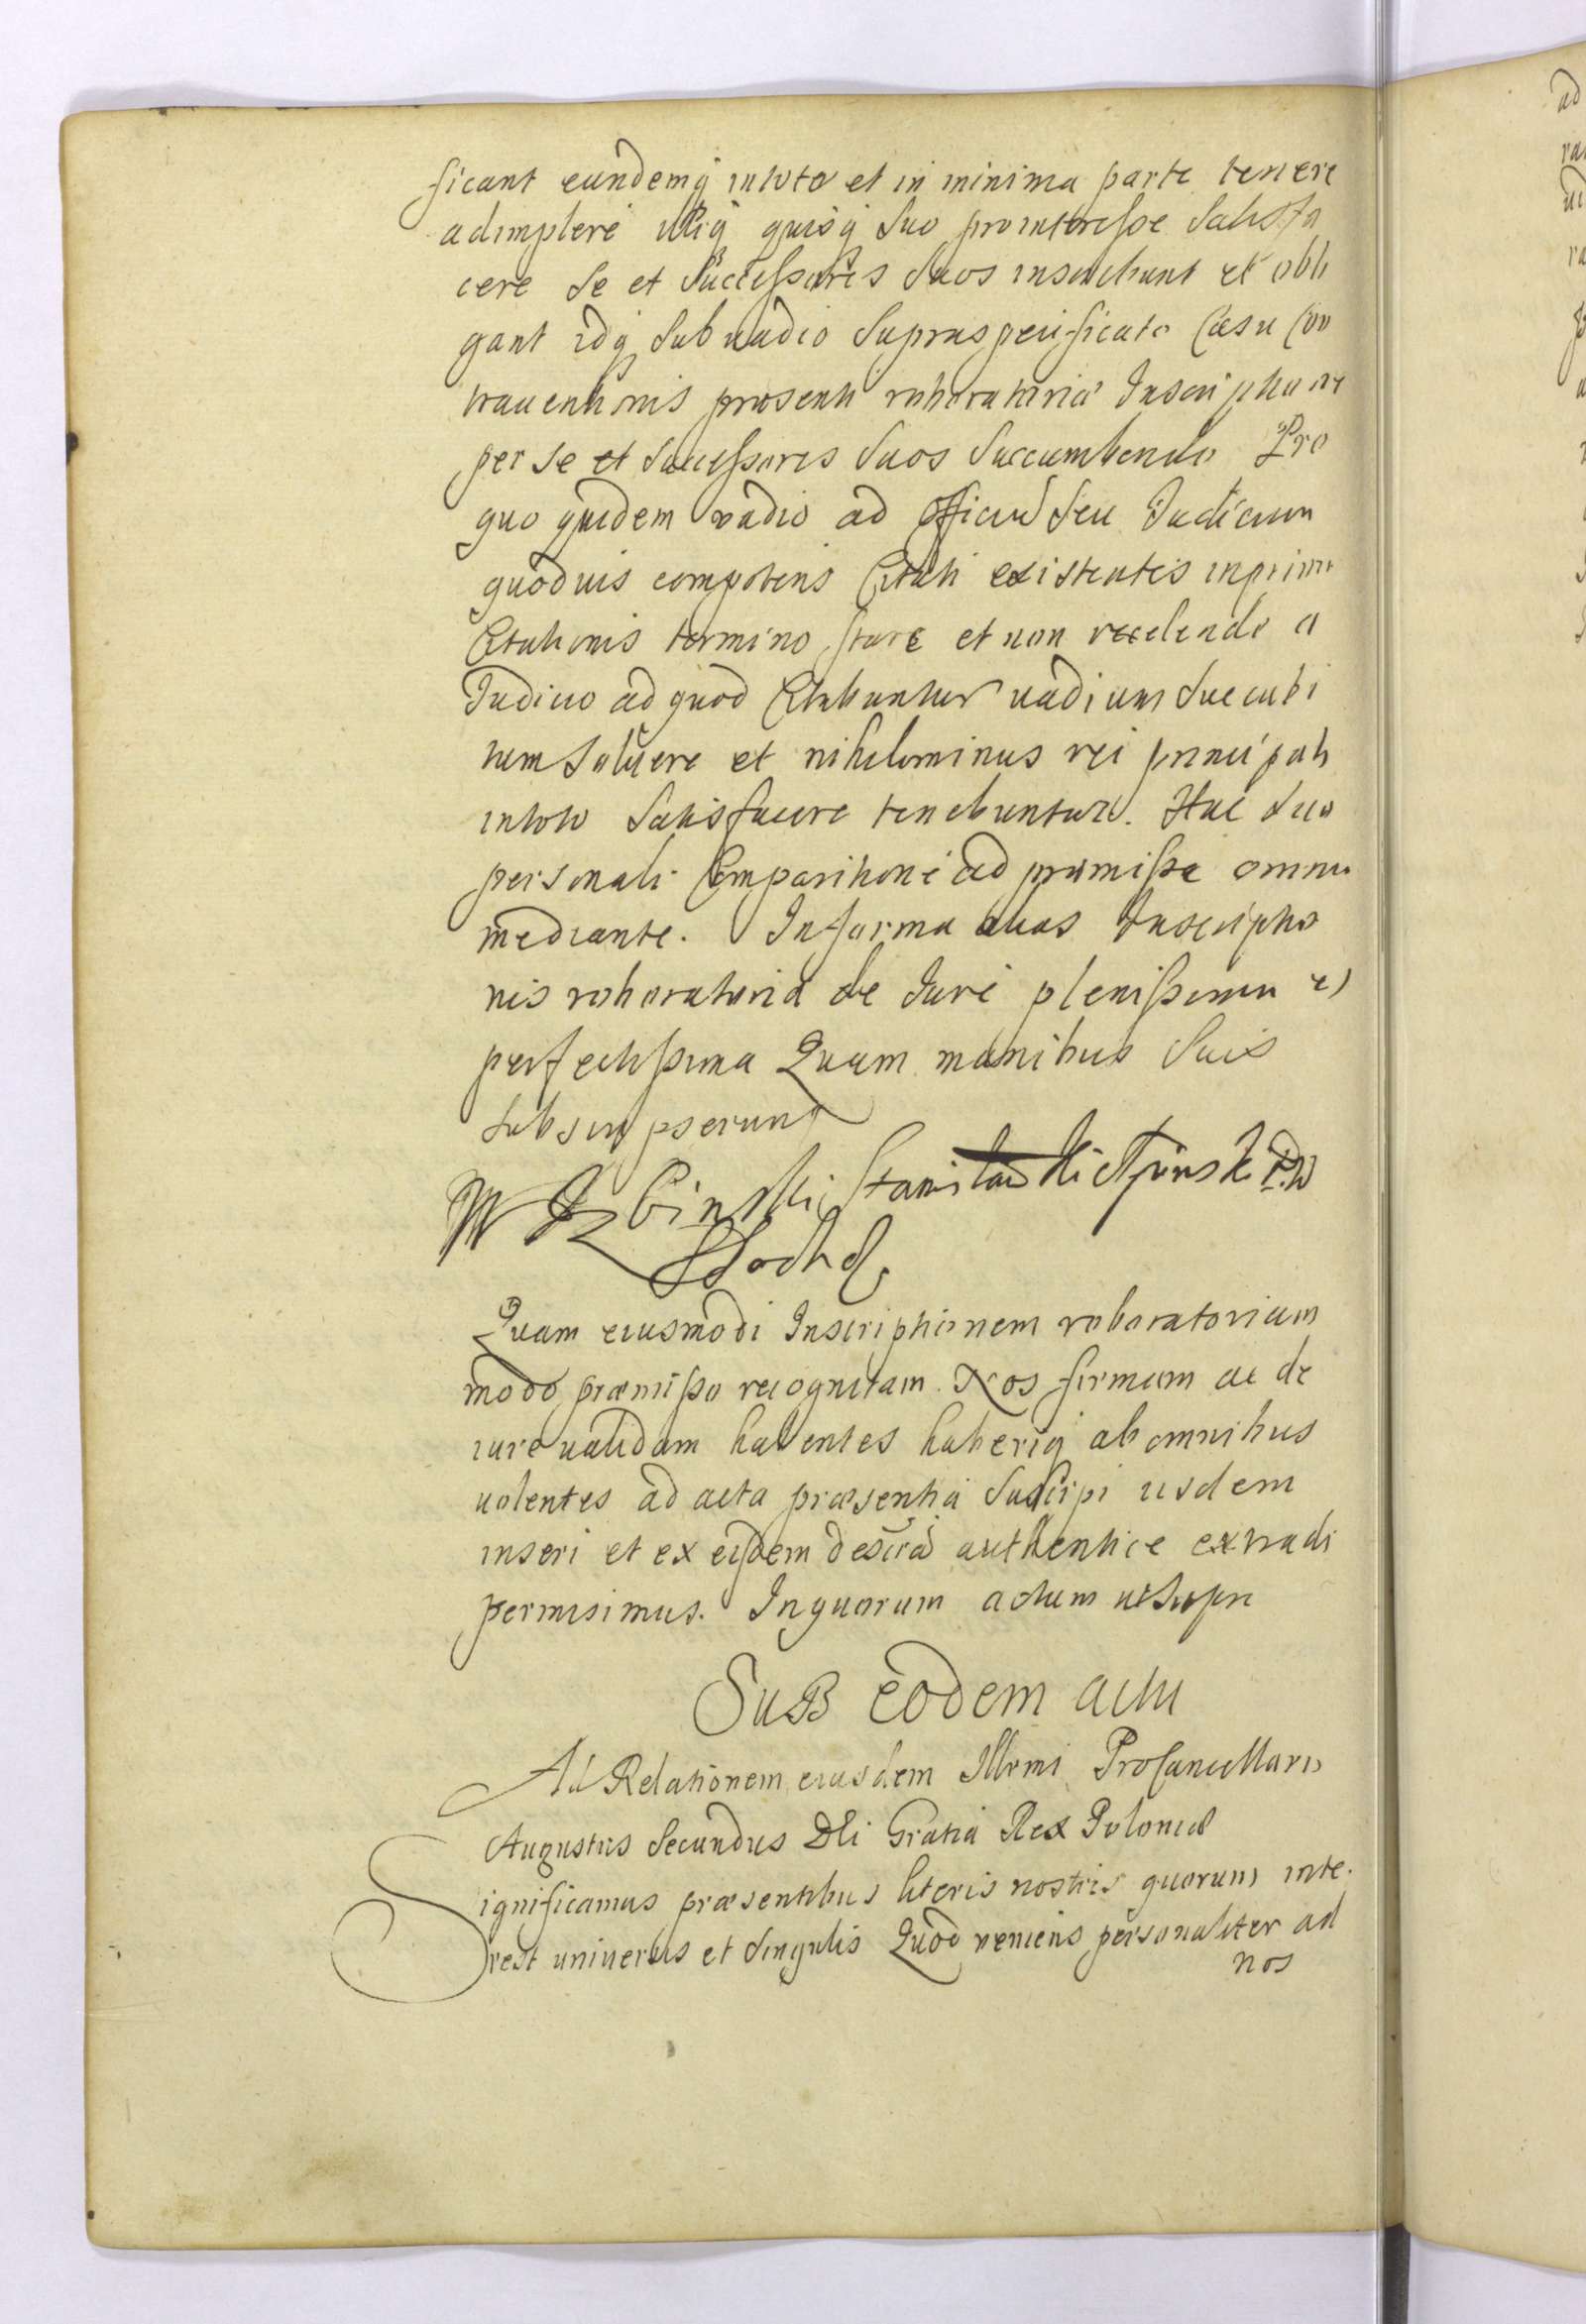 ficant eundemq̃ in toto et in minima parte tenere
adimplere illiq̃ quisq̃ Suo pro interesse Satisfa
cere Se et Successores Suos inscribunt et obli
gant idq̃ Sub vadio Supraspecificato Casu Con
traventionis præsenti roboratoriæ Inscriptione
per Se et Successores Suos Succumbendo Pro
quo quidem vadio ad Officiũ Seu Judicium
quodvis competens Citati existentes in primo
Citationis termino stare et non recedendo a
Judicio ad quod Citabuntur vadium Succubi
tum Solvere et nihilominus rei principali
in toto Satisfacere tenebuntur. Hac Sua
personali Comparitione ad præmissa omnia
mediante. In forma alias Inscriptio
nis roboratoria de Jure plenissima et
perfectissima Quam manibus Suis
Subscripserunt
Quam eiusmodi Inscriptionem roboratoriam
modo præmisso recognitam. Nos firmam ac de
iure validam habentes haberiq̃ ab omnibus
volentes ad acta præsentia Suscipi iisdem
inseri et ex eisdem authentice extradi
permisimus. In quorum actum ut Supra
SuB eodem actu
Ad Relationem eiusdem Illrmi ProCancellarii
Augustus Secundus Dei Gratia Rex Poloniæ
Significamus præsentibus literis nostris quorum inte.
rest universis et Singulis Quod veniens personaliter ad
nos